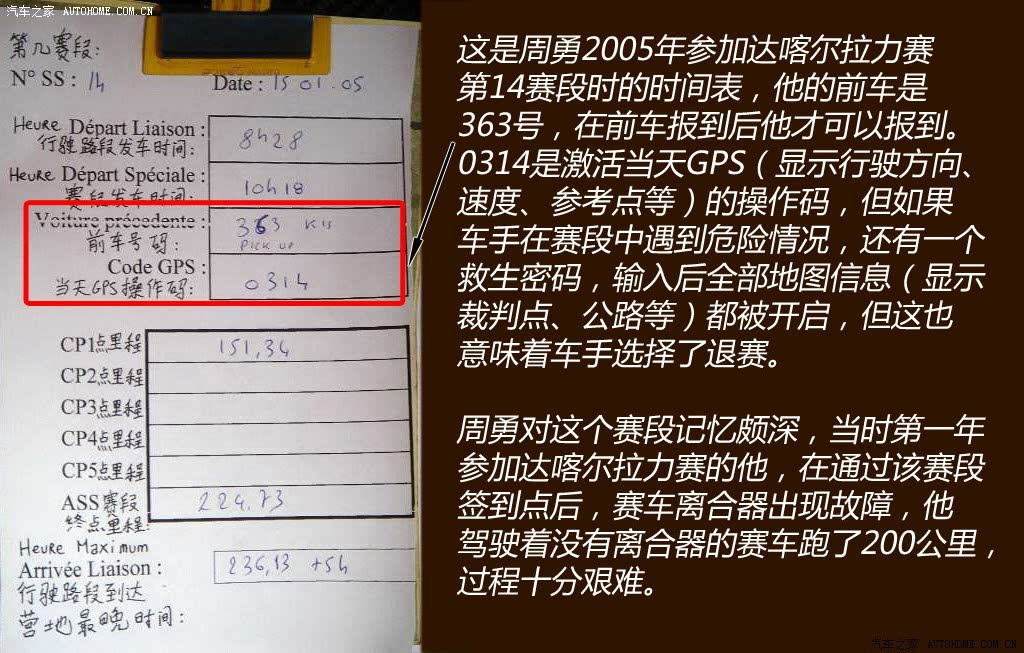 汽车之家 AUTOHOME.COM.CN
第几赛段:
N° SS : 14
Date : 15 01.05
Heure Départ Liaison :
行驶路段发车时间:
8h28
Heure Départ Spéciale :
赛段发车时间:
10h18
Voiture précédente :
前车号码:
363
PICK UP
Code GPS :
当天GPS操作码:
0314
CP1点里程
151,34
CP2点里程
CP3点里程
CP4点里程
CP5点里程
ASS赛段
终点里程:
224,73
Heure Maximum
Arrivée Liaison :
236,13 +5h
行驶路段到达
营地最晚时间:
这是周勇2005年参加达喀尔拉力赛
第14赛段时的时间表，他的前车是
363号，在前车报到后他才可以报到。
0314是激活当天GPS（显示行驶方向、
速度、参考点等）的操作码，但如果
车手在赛段中遇到危险情况，还有一个
救生密码，输入后全部地图信息（显示
裁判点、公路等）都被开启，但这也
意味着车手选择了退赛。
周勇对这个赛段记忆颇深，当时第一年
参加达喀尔拉力赛的他，在通过该赛段
签到点后，赛车离合器出现故障，他
驾驶着没有离合器的赛车跑了200公里，
过程十分艰难。
汽车之家 AUTOHOME.COM.CN